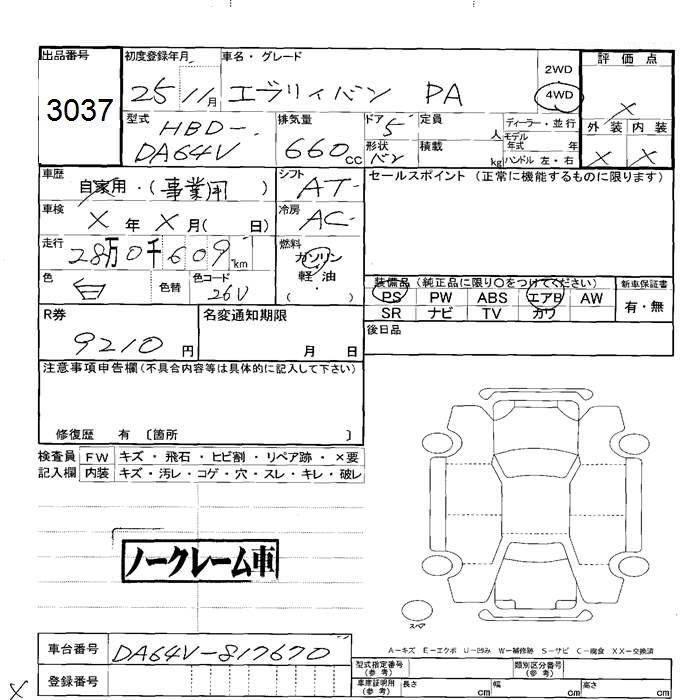 出品番号
3037
初度登録年月
25 11月
車名・グレード
エブリィバン PA
2WD
4WD
評価点
×
外装 内装
× ×
型式
HBD-
DA64V
排気量
660cc
ドア 5
形状 バン
定員 人
積載 kg
ディーラー・並行
モデル年式 年
ハンドル 左・右
車歴
自家用・(事業用)
シフト
AT
セールスポイント (正常に機能するものに限ります)
車検
× 年 × 月( 日)
冷房
AC
走行
28万0千609km
燃料
ガソリン
軽油
・
( )
色
白
色替
色コード
26V
装備品 (純正品に限り○をつけてください)
PS PW ABS エアB AW
SR ナビ TV カワ
新車保証書
有・無
R券
9210円
名変通知期限
月 日
後日品
注意事項申告欄(不具合内容等は具体的に記入して下さい)
修復歴 有 〔箇所 〕
検査員 FW キズ・飛石・ヒビ割・リペア跡・×要
記入欄 内装 キズ・汚レ・コゲ・穴・スレ・キレ・破レ
ノークレーム車
スペア
A-キズ E-エクボ U-凹み W-補修跡 S-サビ C-腐食 XX-交換済
車台番号 DA64V-817670
登録番号
型式指定番号(参考)
類別区分番号(参考)
車庫証明用(参考) 長さ cm 幅 cm 高さ cm
×